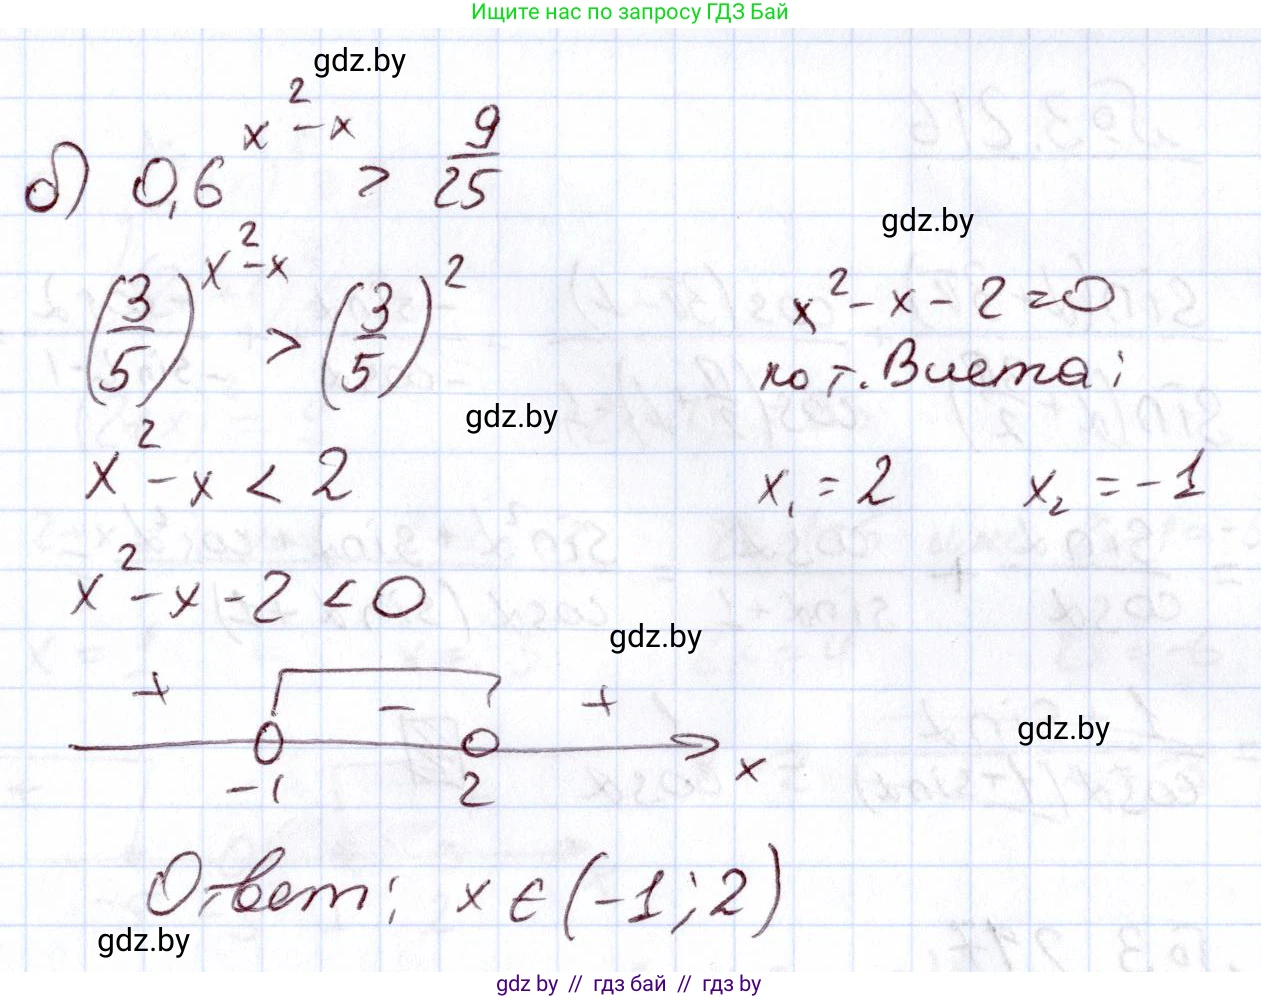 Ищите нас по запросу ГДЗ Бай
gdz.by
б) 0,6^(x²-x) > 9/25
gdz.by
(3/5)^(x²-x) > (3/5)²
x² - x - 2 = 0
по т. Виета:
gdz.by
x² - x < 2
x₁ = 2 x₂ = -1
x² - x - 2 < 0
gdz.by
+ - +
gdz.by
-1 2 x
Ответ: x ∈ (-1; 2)
gdz.by
gdz by // гдз бай // gdz by